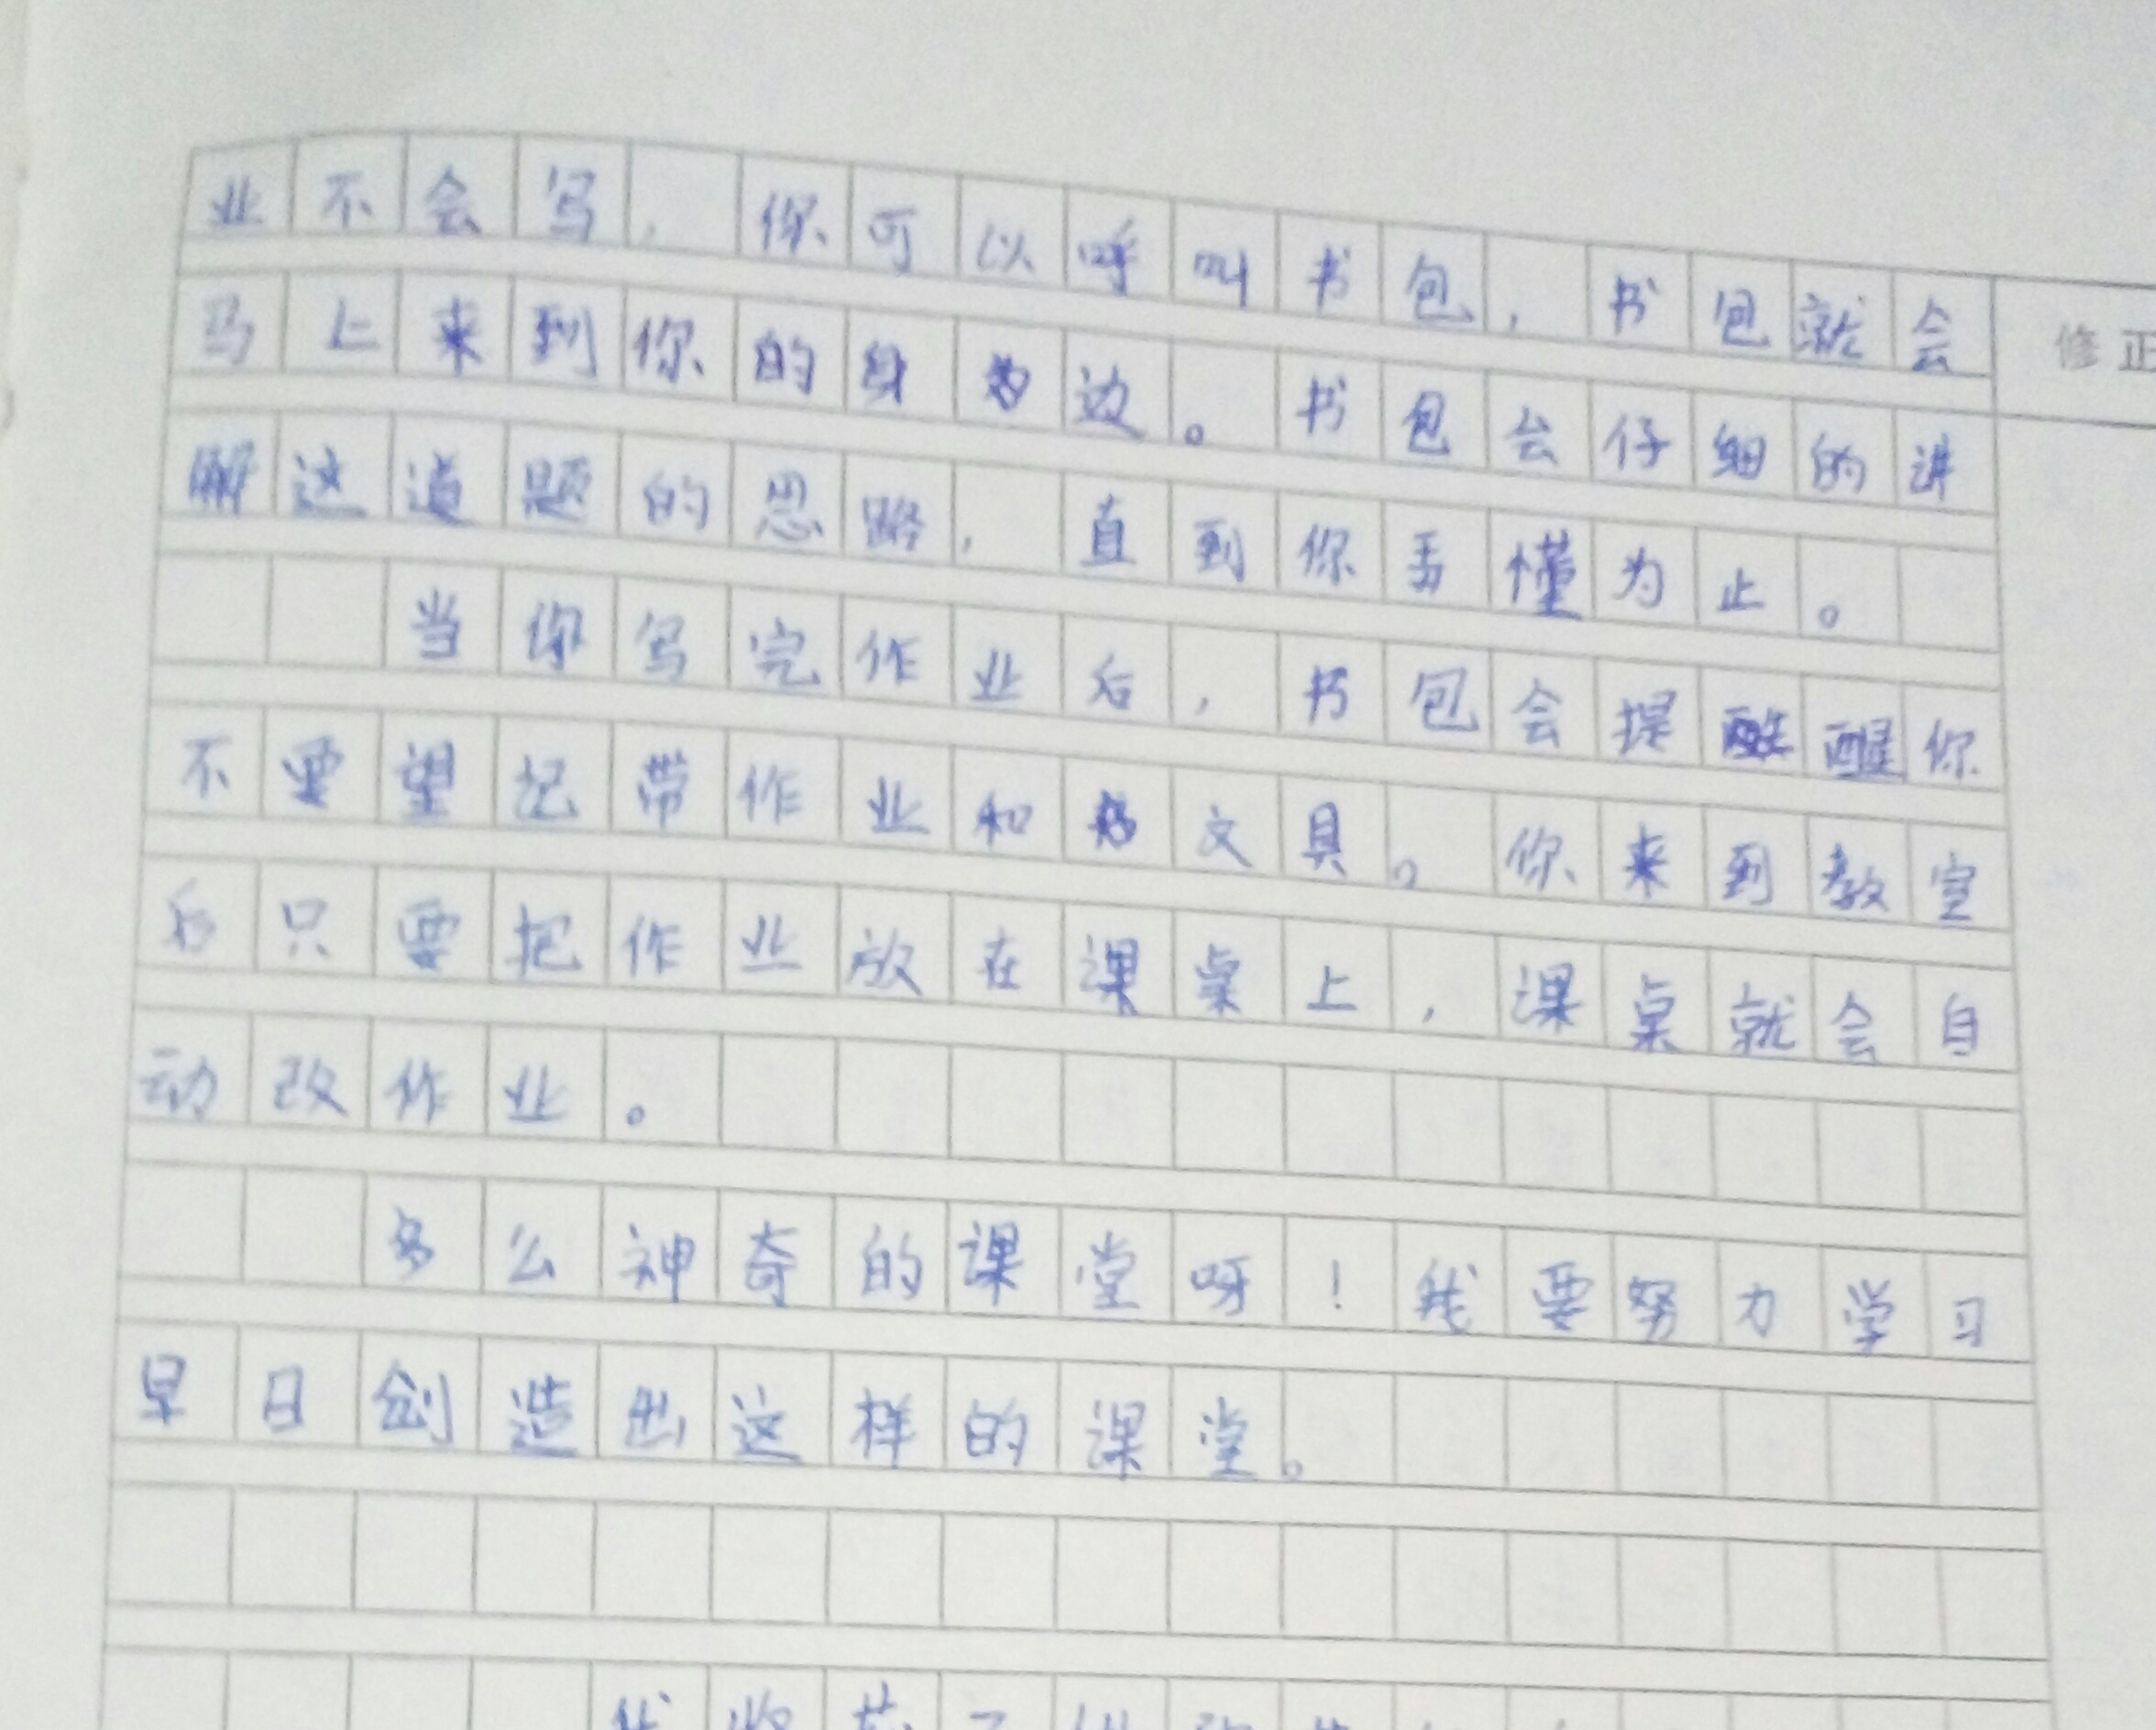 业不会写，你可以呼叫书包，书包就会
修正
马上来到你的身边。书包会仔细的讲
解这道题的思路，直到你弄懂为止。
当你写完作业后，书包会提醒你
不要望记带作业和文具。你来到教室
后只要把作业放在课桌上，课桌就会自
动改作业。
多么神奇的课堂呀！我要努力学习
早日创造出这样的课堂。